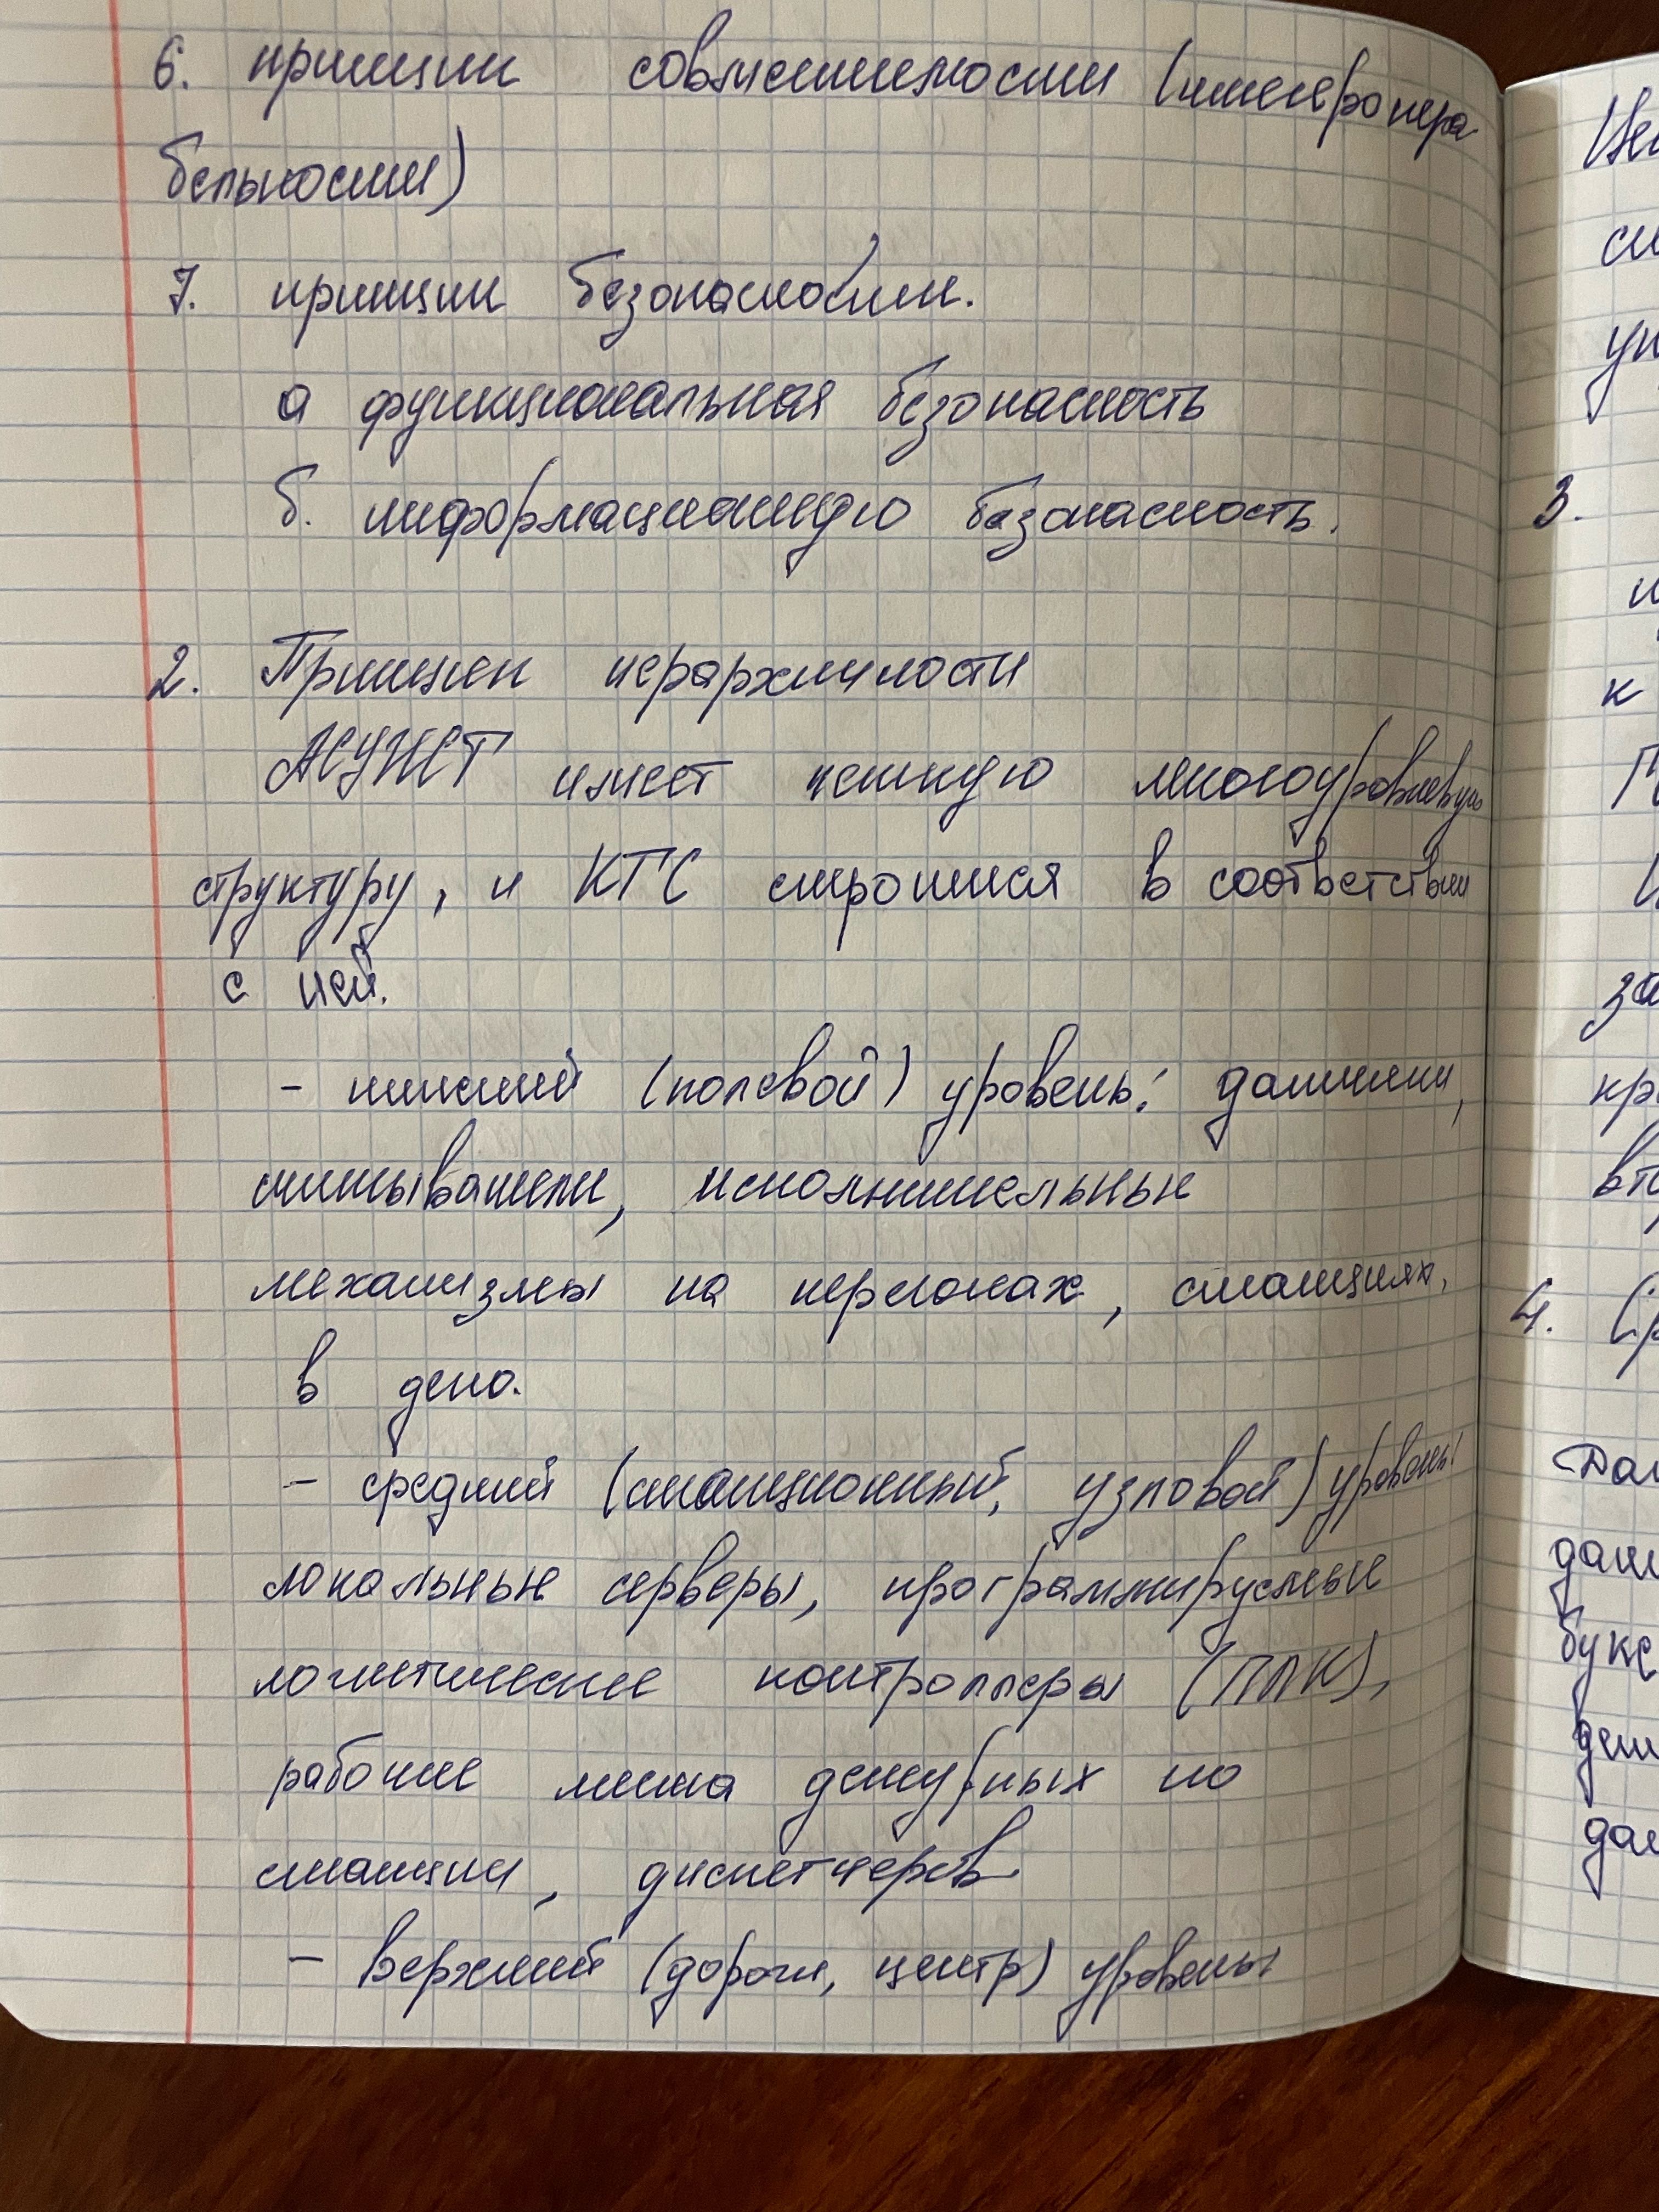 6. принцип совместимости (интеропера
бельности)
7. принцип безопасности.
а функциональная безопасность
б. информационную безопасность.
2. Принцип иерархичности
АСУЖТ имеет четкую многоуровневую
структуру, и КТС строится в соответствии
с ней.
- низший (полевой) уровень: датчики,
считыватели, исполнительные
механизмы на перегонах, станциях,
в депо.
- средний (станционный, узловой) уровень:
локальные серверы, программируемые
логические контроллеры (ПЛК),
рабочие места дежурных по
станции, диспетчеров
- верхний (дороги, центр) уровень:
3.
к
4.